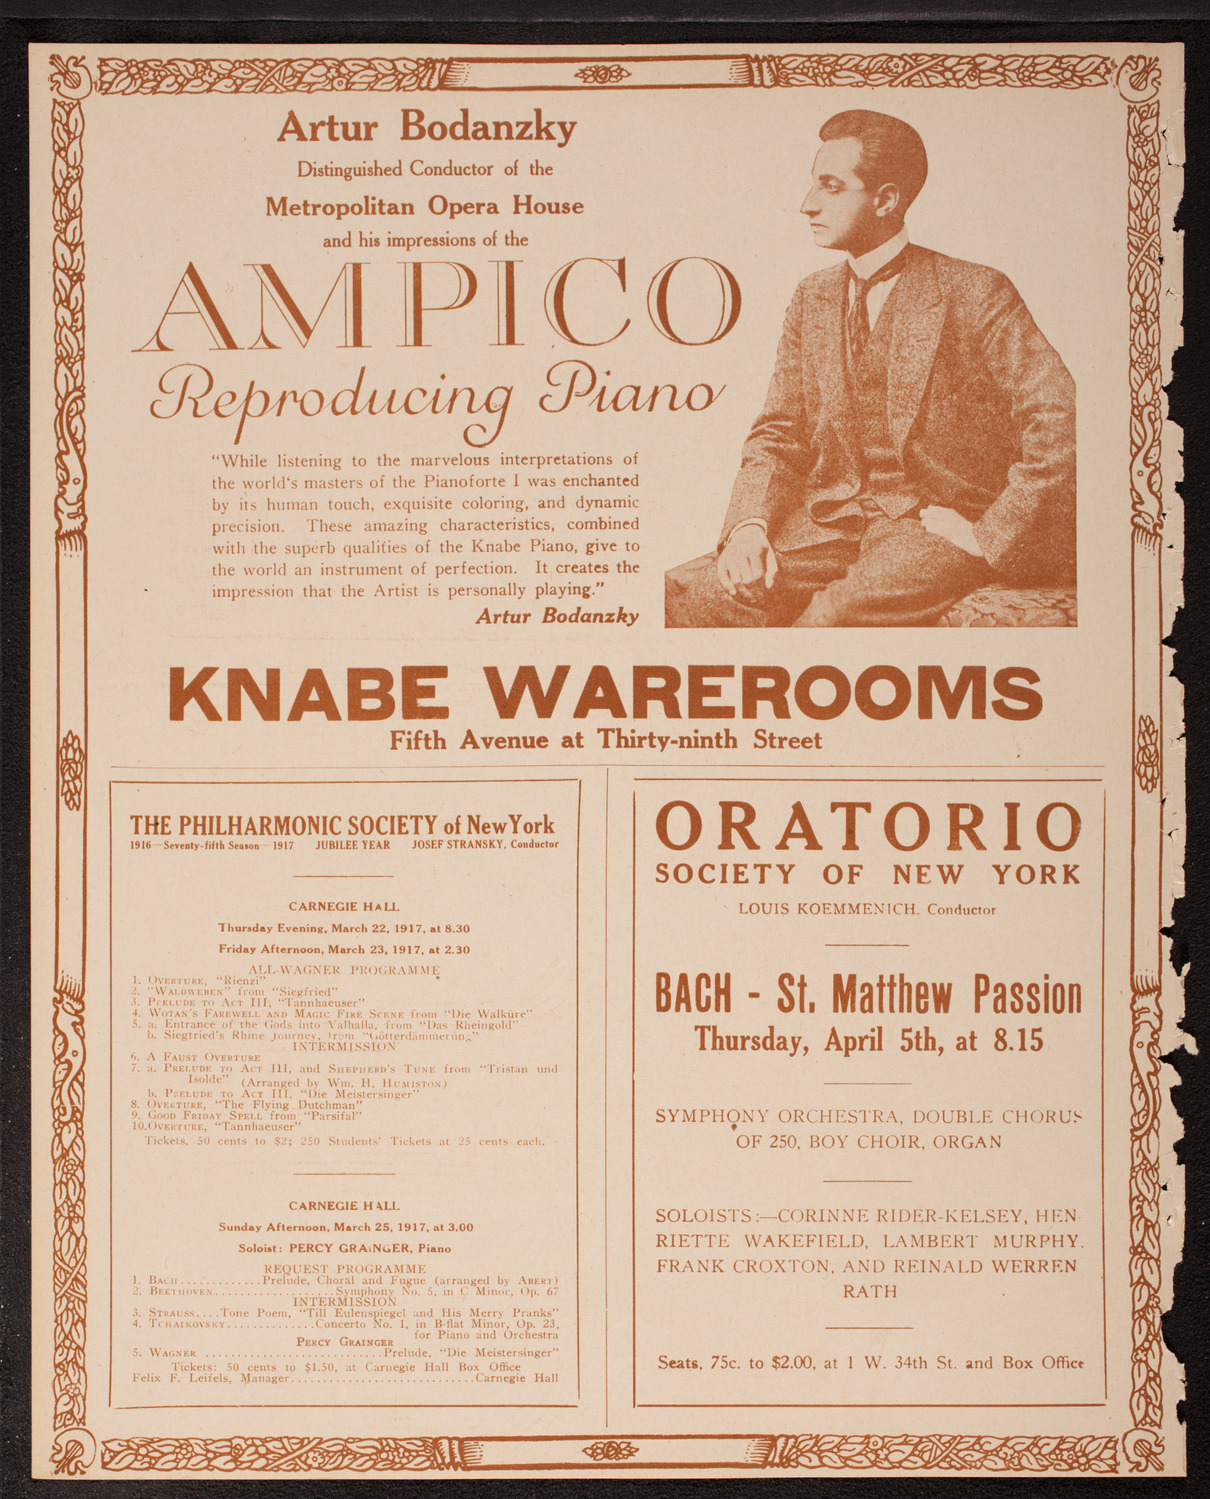 Artur Bodanzky
Distinguished Conductor of the
Metropolitan Opera House
and his impressions of the
AMPICO
Reproducing Piano
“While listening to the marvelous interpretations of
the world‘s masters of the Pianoforte I was enchanted
by its human touch, exquisite coloring, and dynamic
precision. These amazing characteristics, combined
with the superb qualities of the Knabe Piano, give to
the world an instrument of perfection. It creates the
impression that the Artist is personally playing.”
Artur Bodanzky
KNABE WAREROOMS
Fifth Avenue at Thirty-ninth Street
THE PHILHARMONIC SOCIETY of New York
1916—Seventy-fifth Season—1917 JUBILEE YEAR JOSEF STRANSKY, Conductor
CARNEGIE HALL
Thursday Evening, March 22, 1917, at 8.30
Friday Afternoon, March 23, 1917, at 2.30
ALL-WAGNER PROGRAMME
1. OVERTURE, “Rienzi”
2. “WALDWEBEN” from “Siegfried”
3. PRELUDE TO ACT III, “Tannhaeuser”
4. WOTAN'S FAREWELL AND MAGIC FIRE SCENE from “Die Walküre”
5. a. Entrance of the Gods into Valhalla, from “Das Rheingold”
b. Siegfried's Rhine Journey, from “Götterdämmerung”
INTERMISSION
6. A FAUST OVERTURE
7. a. PRELUDE TO ACT III, and SHEPHERD'S TUNE from “Tristan und
Isolde” (Arranged by Wm. H. HUMISTON)
b. PRELUDE TO ACT III, “Die Meistersinger”
8. OVERTURE, “The Flying Dutchman”
9. GOOD FRIDAY SPELL from “Parsifal”
10. OVERTURE, “Tannhaeuser”
Tickets, 50 cents to $2; 250 Students' Tickets at 25 cents each.
CARNEGIE HALL
Sunday Afternoon, March 25, 1917, at 3.00
Soloist: PERCY GRAINGER, Piano
REQUEST PROGRAMME
1. BACH.............Prelude, Choral and Fugue (arranged by ABERT)
2. BEETHOVEN..................Symphony No. 5, in C Minor, Op. 67
INTERMISSION
3. STRAUSS....Tone Poem, “Till Eulenspiegel and His Merry Pranks”
4. TCHAIKOVSKY.............Concerto No. 1, in B-flat Minor, Op. 23,
for Piano and Orchestra
PERCY GRAINGER
5. WAGNER ...........................Prelude, “Die Meistersinger”
Tickets: 50 cents to $1.50, at Carnegie Hall Box Office
Felix F. Leifels, Manager............................Carnegie Hall
ORATORIO
SOCIETY OF NEW YORK
LOUIS KOEMMENICH, Conductor
BACH - St. Matthew Passion
Thursday, April 5th, at 8.15
SYMPHONY ORCHESTRA, DOUBLE CHORUS
OF 250, BOY CHOIR, ORGAN
SOLOISTS:—CORINNE RIDER-KELSEY, HEN-
RIETTE WAKEFIELD, LAMBERT MURPHY,
FRANK CROXTON, AND REINALD WERREN
RATH
Seats, 75c. to $2.00, at 1 W. 34th St. and Box Office